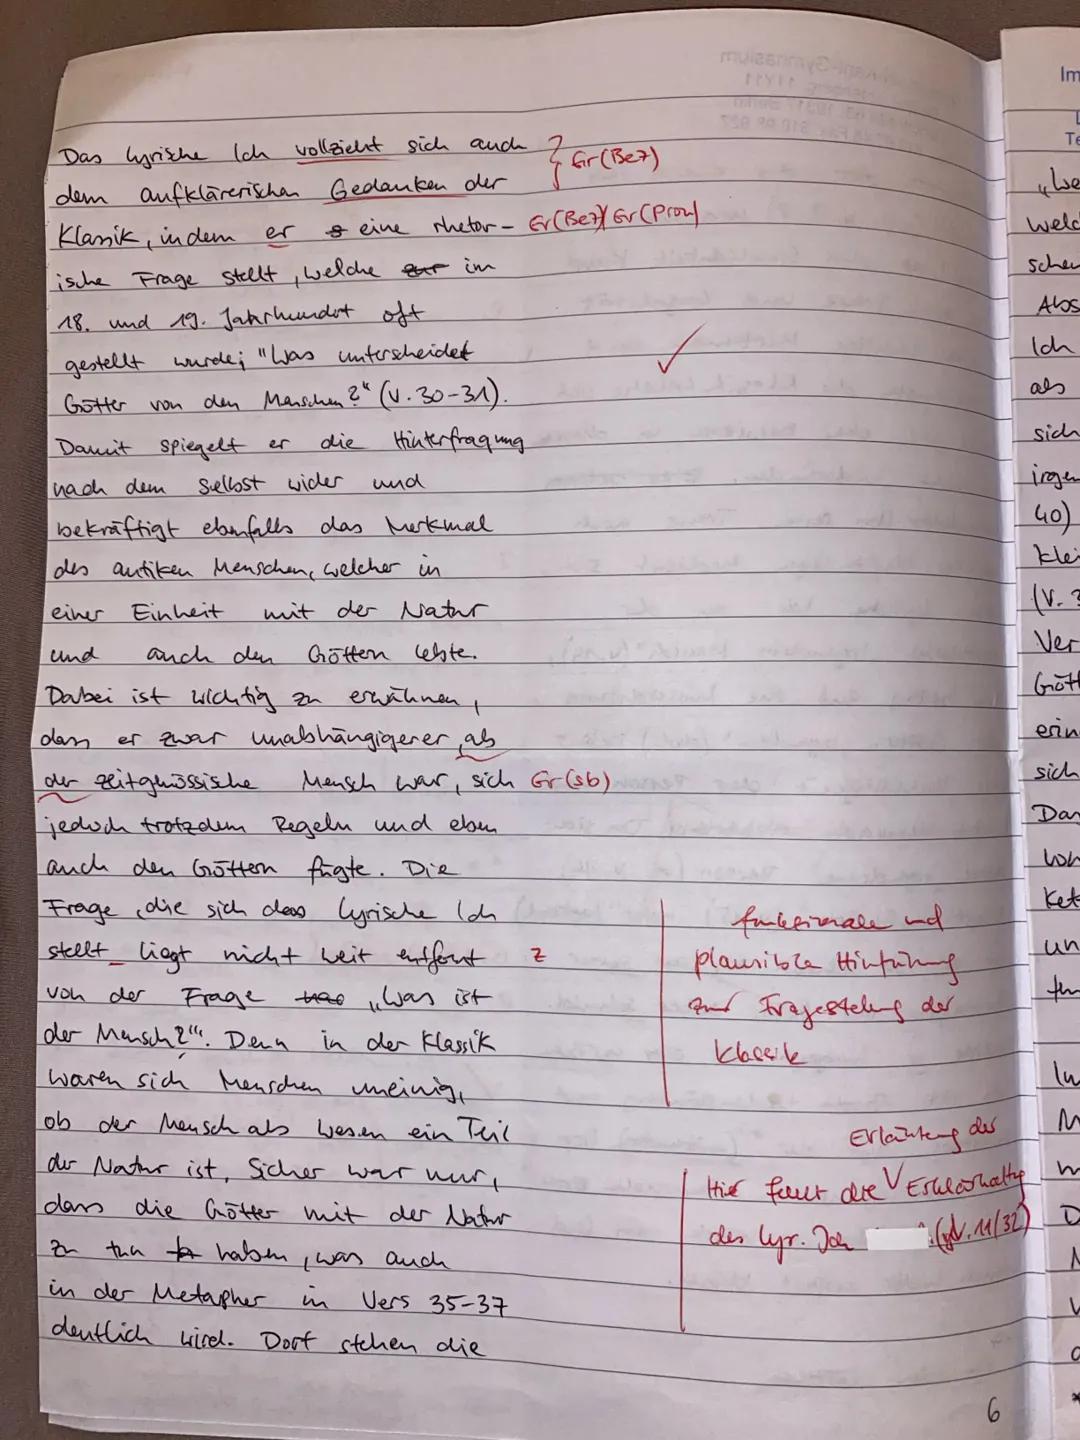 Das lyrische Ich vollzieht sich auch } Gr(Bez)
dem aufklärerischen Gedanken der
Klassik, indem er eine rhetor- Gr(Bez)/Gr(Pron)
ische Frage stellt, welche im
18. und 19. Jahrhundert oft
gestellt wurde; "Was unterscheidet
Götter von den Menschen?" (V. 30-31). ✓
Damit spiegelt er die Hinterfragung
nach dem Selbst wider und
bekräftigt ebenfalls das Merkmal
des antiken Menschen, welcher in
einer Einheit mit der Natur
und auch den Göttern lebte.
Dabei ist wichtig zu erwähnen,
dass er zwar unabhängigerer, als
der zeitgenössische Mensch war, sich Gr(sb)
jedoch trotzdem Regeln und eben
auch den Göttern fügte. Die
Frage, die sich das lyrische Ich
stellt liegt nicht weit entfernt Z
von der Frage „Was ist
der Mensch?". Denn in der Klassik
waren sich Menschen uneinig,
ob der Mensch als Wesen ein Teil
der Natur ist, Sicher war nur,
dass die Götter mit der Natur
zu tun haben, was auch
in der Metapher in Vers 35-37
deutlich wird. Dort stehen die
funktionale und
plausible Hinführung
zur Fragestellung der
Klassik
Erläuterung der
Hier fehlt die V
des lyr. Ich (V. 11/32)
6
Im
L
Te
„We
welc
schen
Abs
Ich
als
sich
irgen
40)
klei
(V. 3
Ver
Gött
erin
sich
Das
von
Ket
un